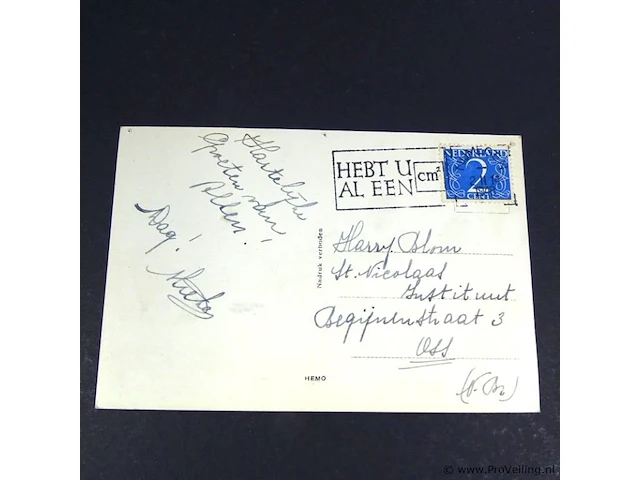 Hartelijke
Groeten van
Allen!
Dag!
HEBT U
AL EEN
cm²
NEDERLAND
2
CENT
Nadruk verboden
Harry Blom
St. Nicolaas
Instituut
Begijnenstraat 3
Oss
(N. Br.)
HEMO
© www.ProVeiling.nl